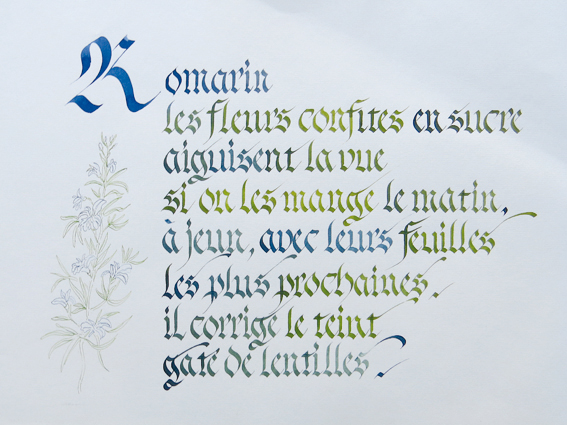 Romarin
les fleurs confites en sucre
aiguisent la vue
si on les mange le matin,
à jeun, avec leurs feuilles
les plus prochaines.
il corrige le teint
gaté de lentilles.